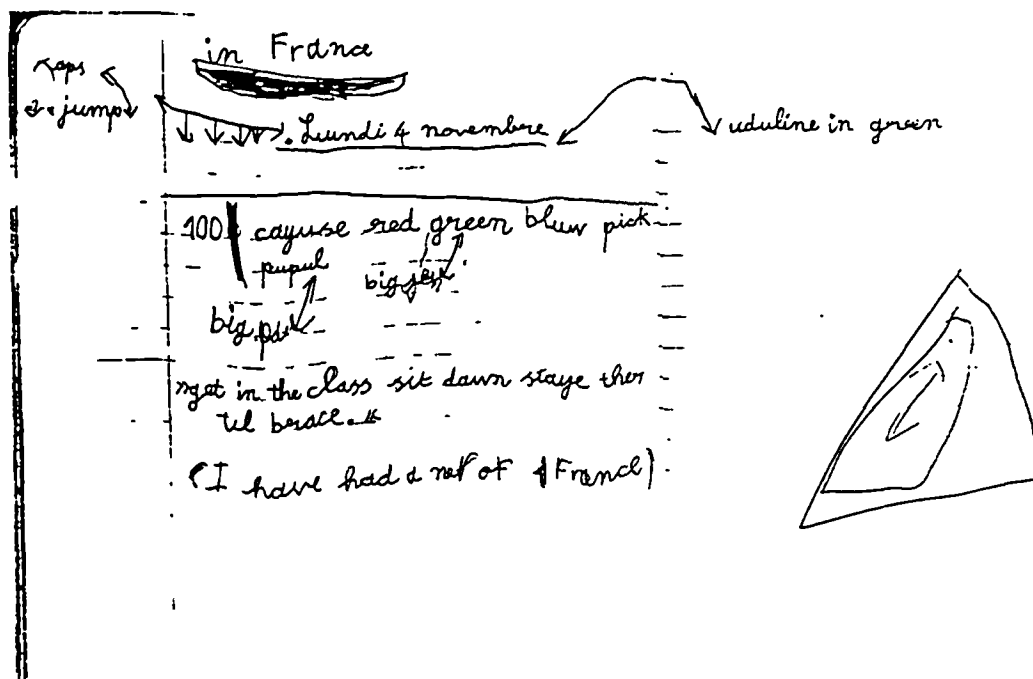 in France
jump
. Lundi 4 novembre
uduline in green
100 cayuse red green bluw pick
pupul
big
big
"get in the class sit dawn staye ther
til
(I have had a of France)